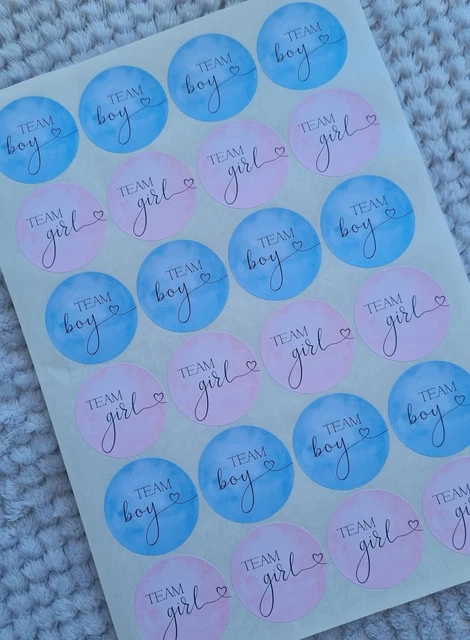 TEAM
boy
TEAM
boy
TEAM
boy
TEAM
boy
TEAM
girl
TEAM
girl
TEAM
girl
TEAM
girl
TEAM
boy
TEAM
boy
TEAM
boy
TEAM
boy
TEAM
girl
TEAM
girl
TEAM
girl
TEAM
girl
TEAM
boy
TEAM
boy
TEAM
boy
TEAM
boy
TEAM
girl
TEAM
girl
TEAM
girl